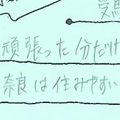 受験
頑張った分だけ
奈良は住みやすい